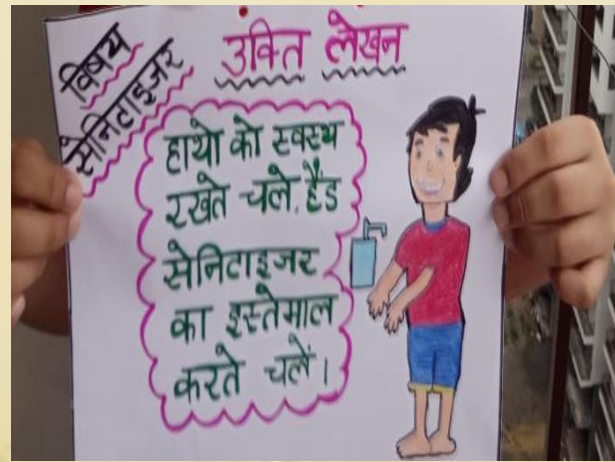 विषय
सेनिटाइजर
उक्ति लेखन
हाथो को स्वस्थ
रखते चले, हैंड
सेनिटाइजर
का इस्तेमाल
करते चलें।